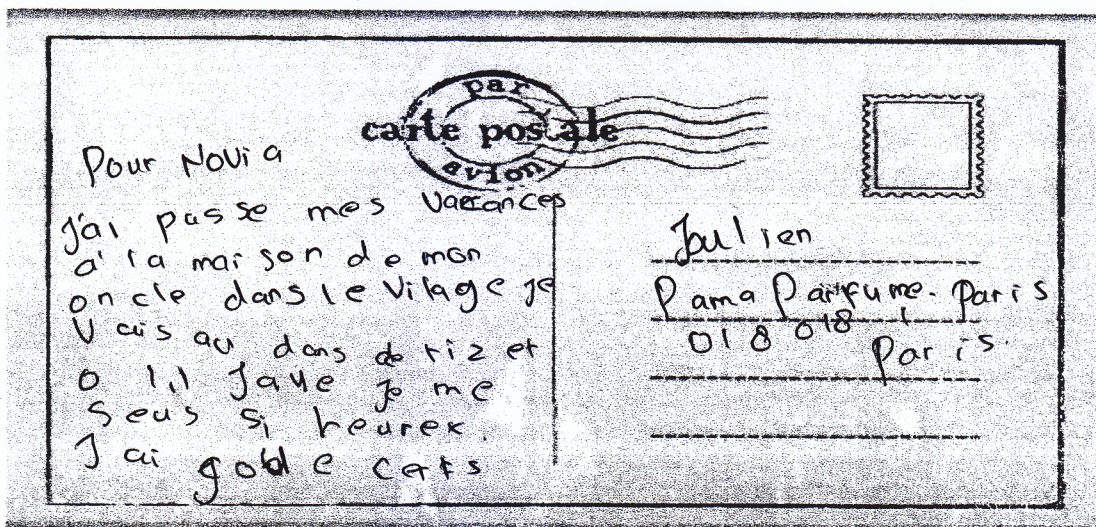 par
carte postale
avion
Pour Novia
J'ai passe mes vacances
a' la maison de mon
oncle dans le vilage je
Vais au dans de riz et
Jaue je me
Seus si heurex.
J'ai goble cets
Joulien
Pama Parfume. Paris
018 018
Paris.